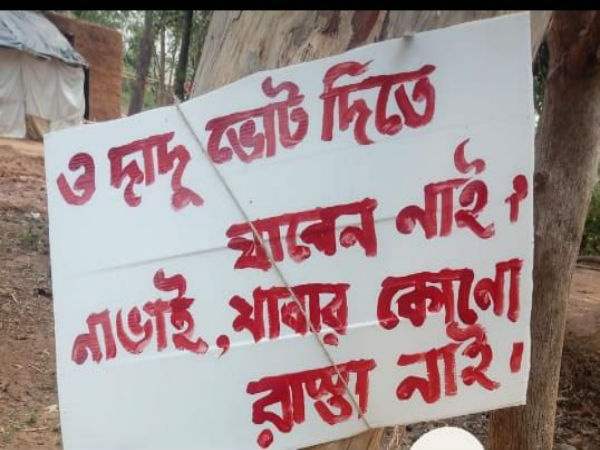 ও দাদু ভোট দিতে
যাবেন নাই?
নাভাই, যাবার কোনো
রাস্তা নাই।